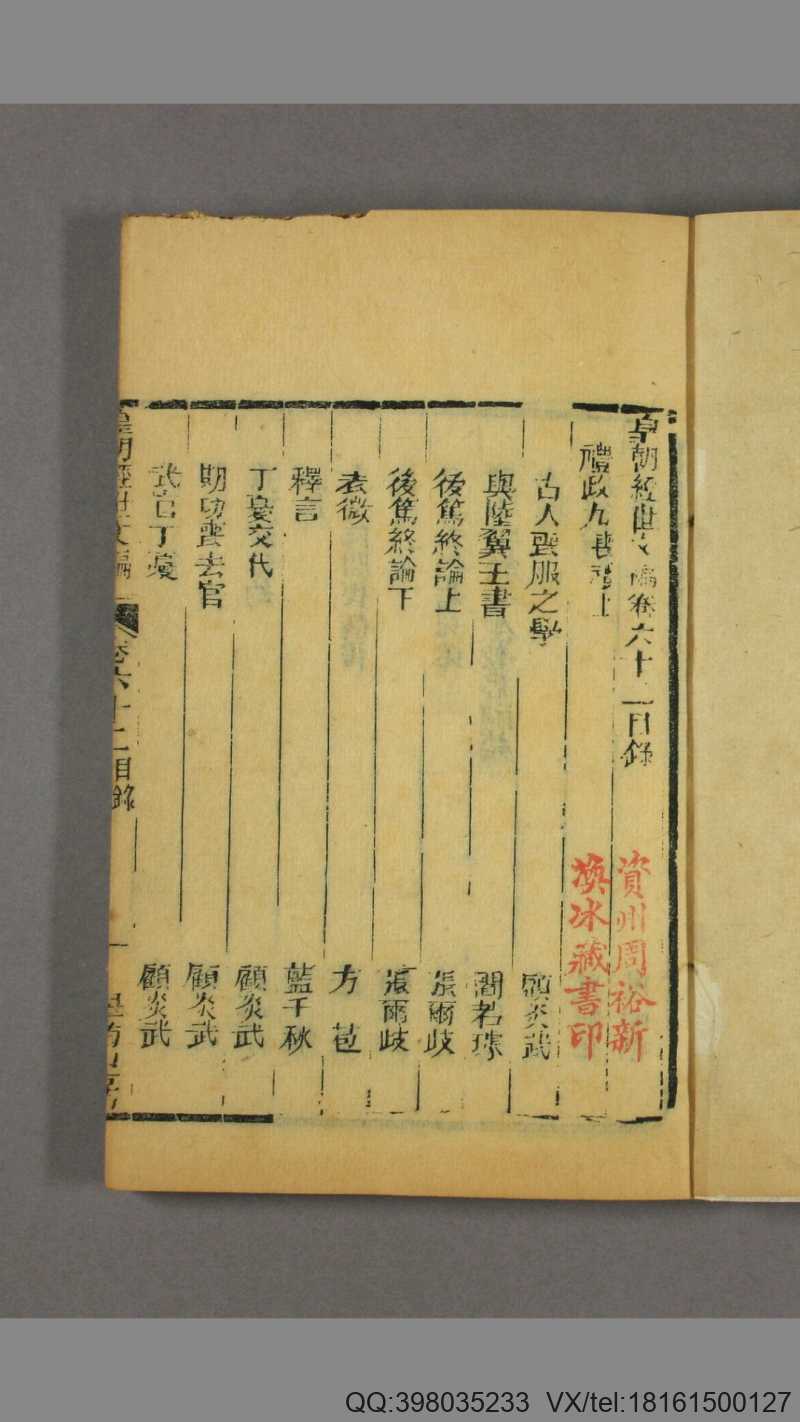 皇朝經世文編卷六十二目錄
禮政九喪禮上
古人喪服之學 顧炎武
與陸翼王書 閻若璩
後篤終論上 張爾歧
後篤終論下 張爾歧
表微 方苞
釋言 藍千秋
丁憂交代 顧炎武
期功喪去官 顧炎武
武官丁憂 顧炎武
皇朝經世文編 卷六十二目錄 一
資州周裕新
渙冰藏書印
QQ:398035233 VX/tel:18161500127